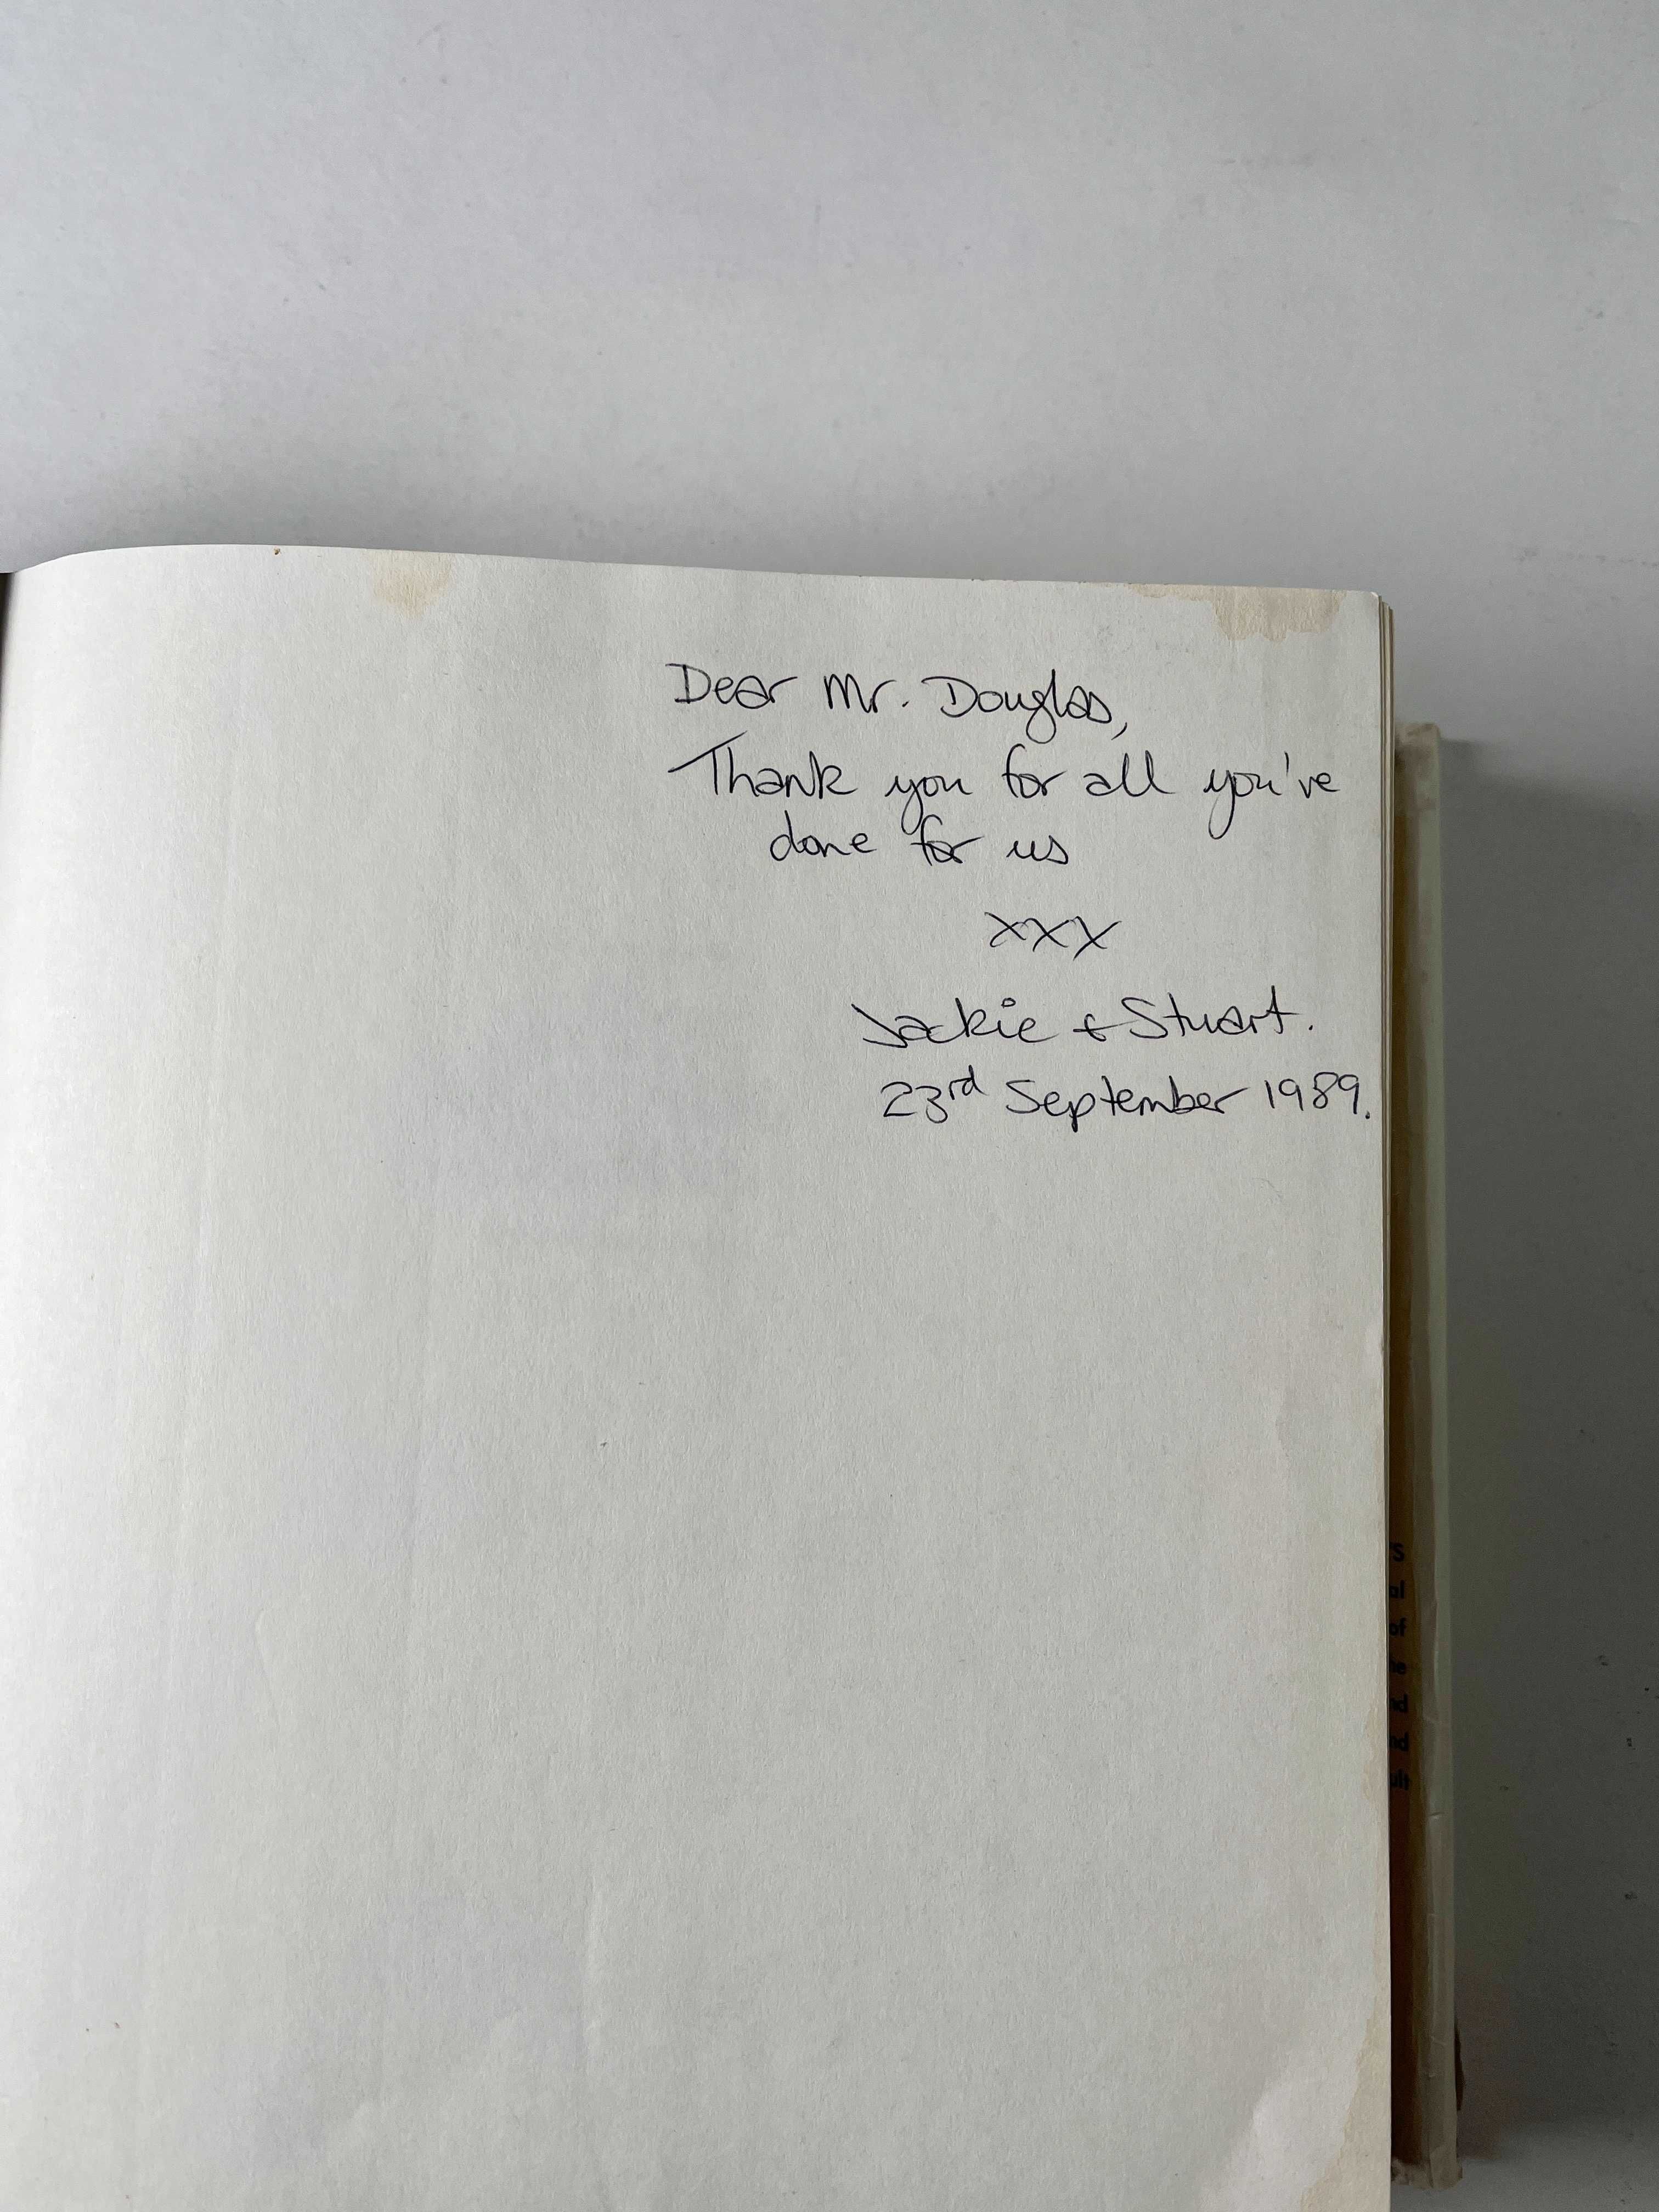 Dear Mr. Douglas,
Thank you for all you've
done for us
xxx
Jackie & Stuart.
23rd September 1989.
's
al
of
he
nd
nd
ult